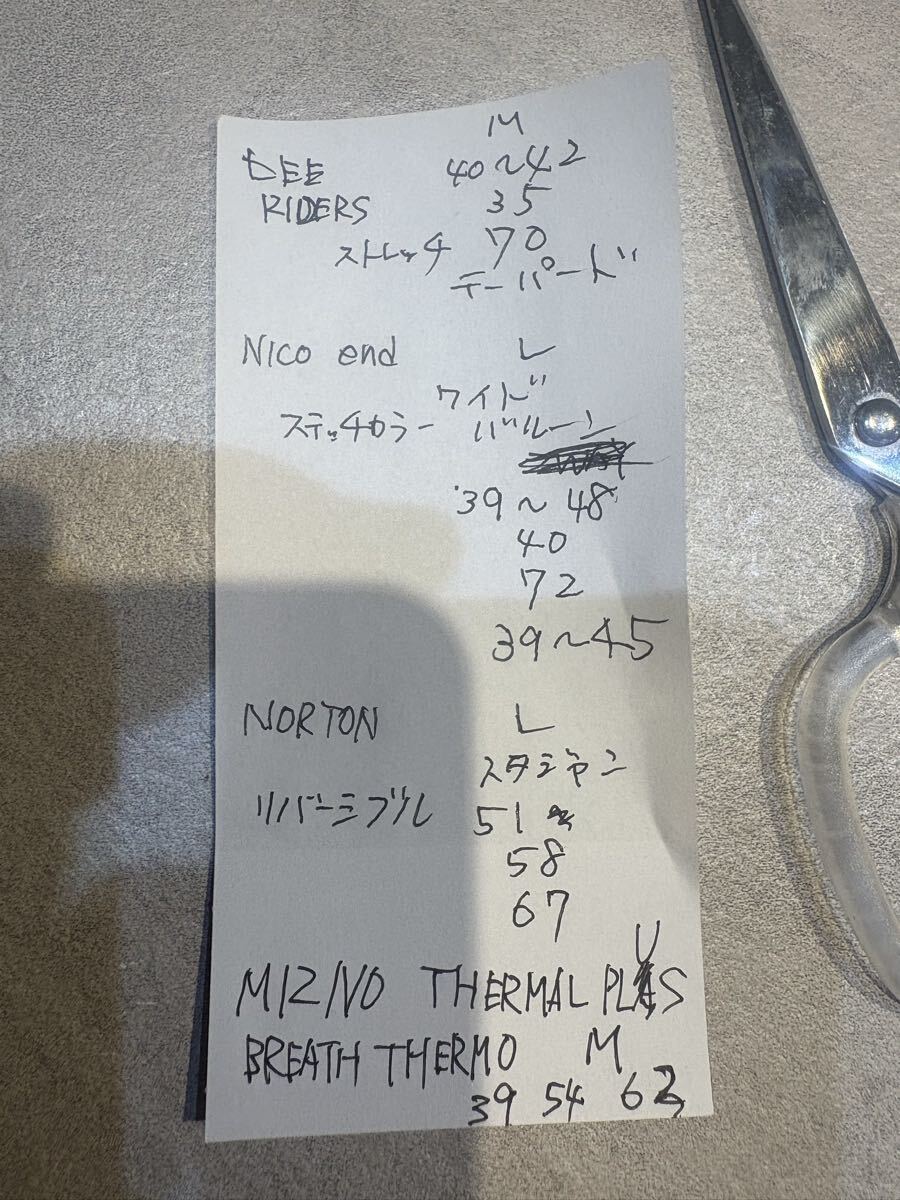 M
DEE 40～42
RIDERS 35
ストレッチ 70
テーパード
NICO end L
ワイド
ステッチカラー バルーン
39～48
40
72
39～45
NORTON L
スタジャン
リバーシブル 51
58
67
MIZINO THERMAL PLUS
BREATH THERMO M
39 54